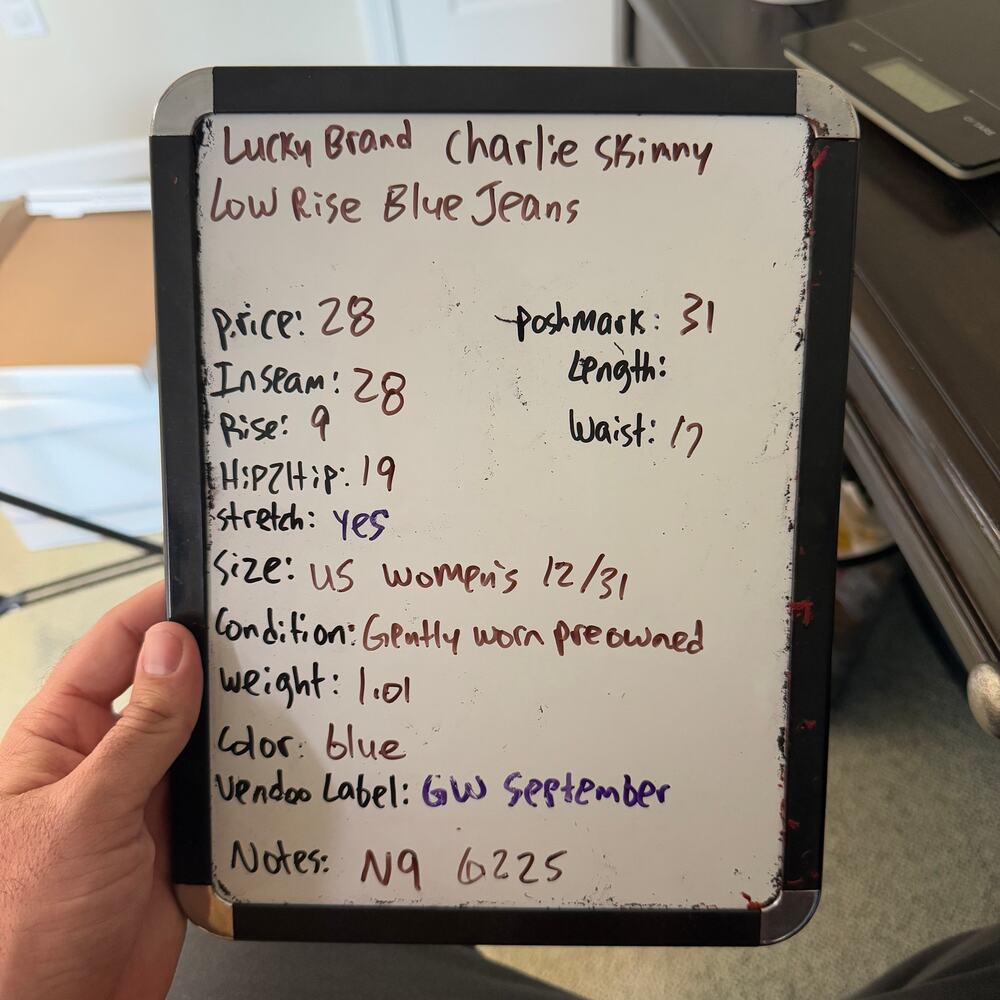 Lucky Brand Charlie Skinny
Low Rise Blue Jeans
price: 28
Poshmark: 31
Inseam: 28
Length:
Rise: 9
Waist: 17
Hip2Hip: 19
stretch: yes
Size: US women's 12/31
Condition: Gently worn preowned
weight: 1.01
Color: blue
Vendoo Label: GW September
Notes: N9 6225